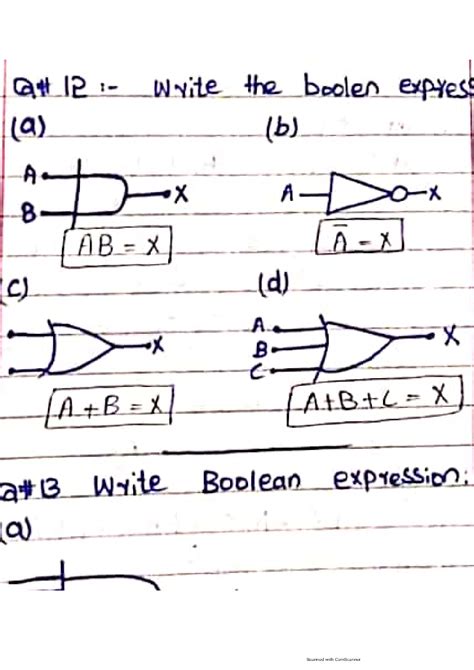 Q#12 :- Write the boolen express
(a) (b)
A X A X
B
AB = X Ā = X
c) (d)
X A X
B
C
A+B = X A+B+C = X
Q#13 Write Boolean expression:
(a)
Scanned with CamScanner